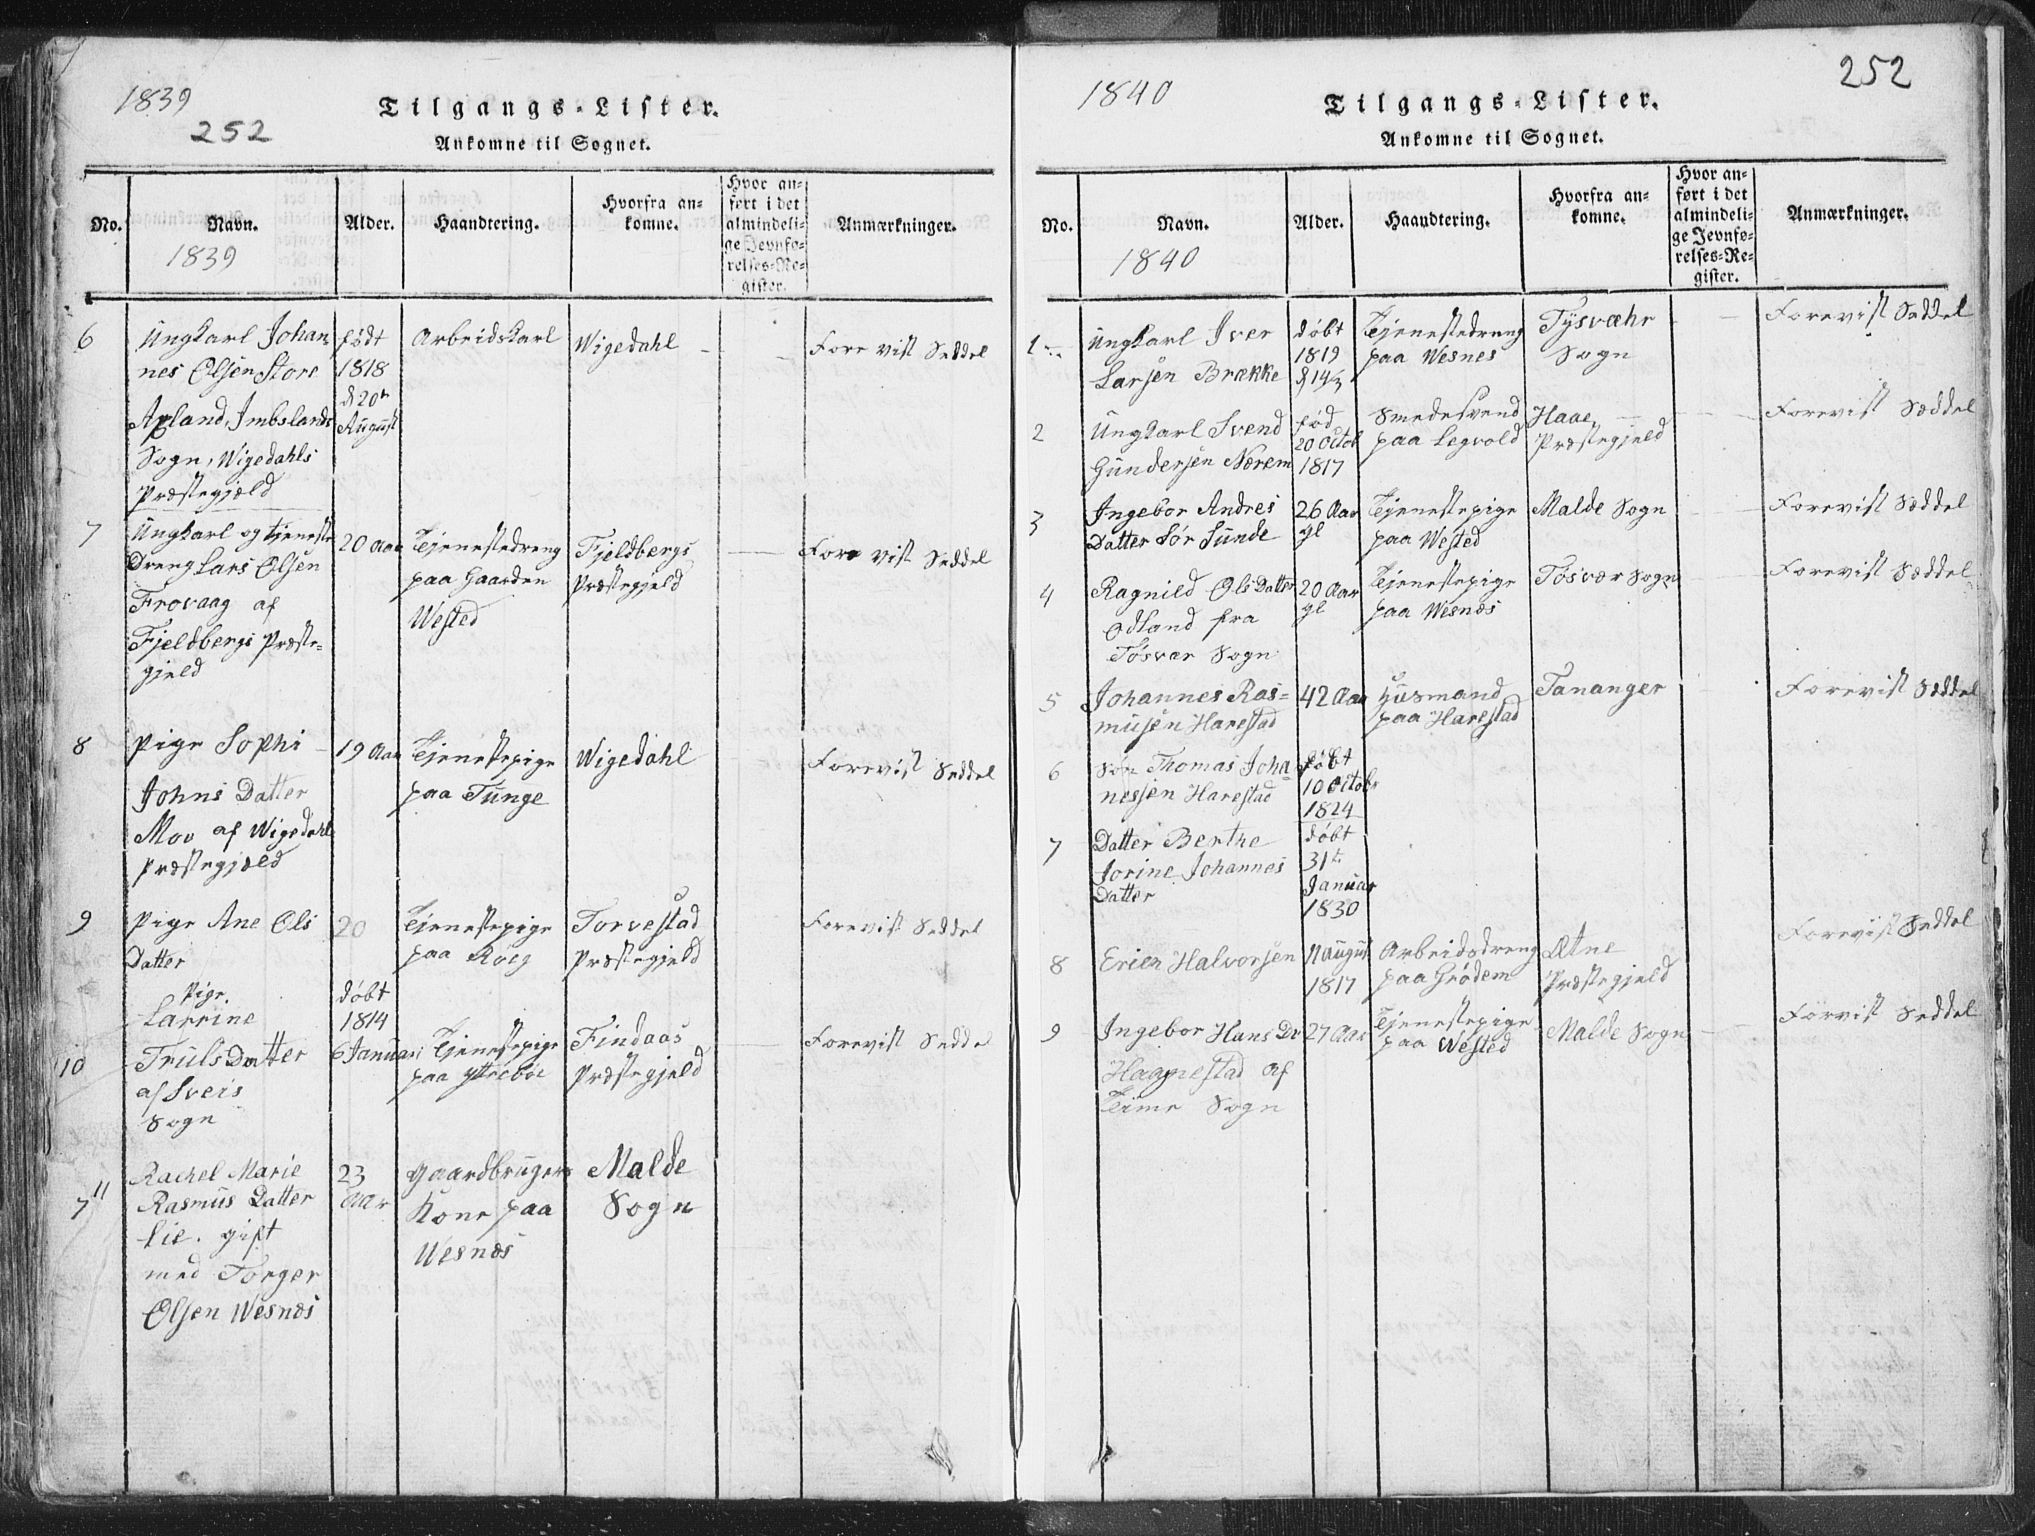 1839
252
Tilgangs-Lister.
Ankomne til Sognet.
No.
Navn.
1839
Alder.
Haandtering.
Hvorfra an-
komne.
Hvor an-
ført i det
almindeli-
ge Jevnfø-
relses-Re-
gister.
Anmærkninger.
6
Ungkarl Johan
nes Olsen Store
Axland, Imbslands
Sogn, Wigedahls
Præstegjæld
født
1818
d 20de
August
Arbeidskarl
Wigedahl
Fore vist Seddel
7
Ungkarl og tjeneste
Dreng Lars Olsen
Frovaag af
Fjeldbergs Præste-
gjeld
20 Aar
Tjenestedreng
paa Gaarden
Wested
Fjeldbergs
Præstegjeld
Fore vist Seddel
8
Pige Sophi
Johns Datter
Mov af Wigedahl
Præstegjæld
19 Aar
Tjenestepige
paa Tunge
Wigedahl
Forevist Seddel
9
Pige Ane Ols
Datter
20
Tjenestepige
paa
Torvestad
Præstegjeld
Forevist Seddel
10
Pige
Larrine
Truls Datter
af Sveis
Sogn
døbt
1814
6 Januari
Tjenestepige
paa Ytrebøe
Findaas
Præstegjeld
Forevist Sedde
7 11
Rachel Marie
Rasmus Datter
Lie. gift
med Torger
Olsen Wesnæs
23
Aar
Gaardbrugers
Kone paa
Wesnæs
Malde
Sogn
1840
252
Tilgangs-Lister.
Ankomne til Sognet.
No.
Navn.
1840
Alder.
Haandtering.
Hvorfra an-
komne.
Hvor an-
ført i det
almindeli-
ge Jevnfø-
relses-Re-
gister.
Anmærkninger.
1
Ungkarl Iver
Larsen Brække
døbt
1819
d 14/3
Tjenestedreng
paa Wesnes
Tysvæhr
Sogn
Forevist Seddel
2
Ungkarl Svend
Gundersen Nærem
fød
20 Octob
1817
Smedesvend
paa Legvold
Haae
Præstegjeld
Forevist Sæddel
3
Ingebor Andres
Datter Sør Sunde
26 Aar
gl
Tjenestepige
paa Wested
Malde Sogn
Forevist Sæddel
4
Ragnild Ols Datter
Odland fra
Tøsvær Sogn
20 Aar
gl
Tjenestepige
paa Wesnæs
Tøsvær Sogn
Forevist Sæddel
5
Johannes Ras-
musen Harestad
42 Aar
Husmand
paa Harestad
Tananger
Forevist Sæddel
6
Søn Thomas Joha
nessen Harestad
døbt
10 Octob
1824
7
Datter Berthe
Jorine Johannes
Datter
døbt
31te
Januar
1830
8
Erien Halvorsen
11 August
1817
Arbeidsdreng
paa Grødem
Ætne
Præstegjeld
Forevist Seddel
9
Ingebor Hans Dr
Haagnestad af
Time Sogn
27 Aar
Tjenestepige
paa Wested
Malde Sogn
Forvist Seddel